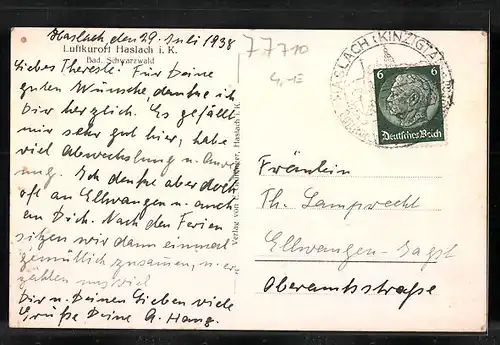 Haslach den 29. Juli 1938
Luftkurort Haslach i. K.
Bad. Schwarzwald
Liebes Theresle. Für Deine
guten Wünsche, danke ich
Dir herzlich. Es gefällt
mir sehr gut hier, habe
viel Abwechslung u. Anreg
ung. Ich denke aber doch
oft an Ellwangen u. auch
an Dich. Nach den Ferien
sitzen wir dann einmal
gemütlich zusammen, u. er
zählen uns viel
Dir u. Deinen Lieben viele
Grüße Deine A. Haug.
Verlag von Haslach i. K.
77710
HASLACH (KINZIGTAL)
6 6
Deutsches Reich
Fräulein
Th. Lamprecht
Ellwangen-Jagst
Oberamtsstraße